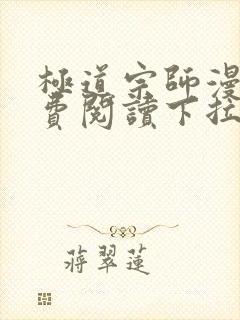 極道宗師漫
費閱讀下拉
蔣翠蓮